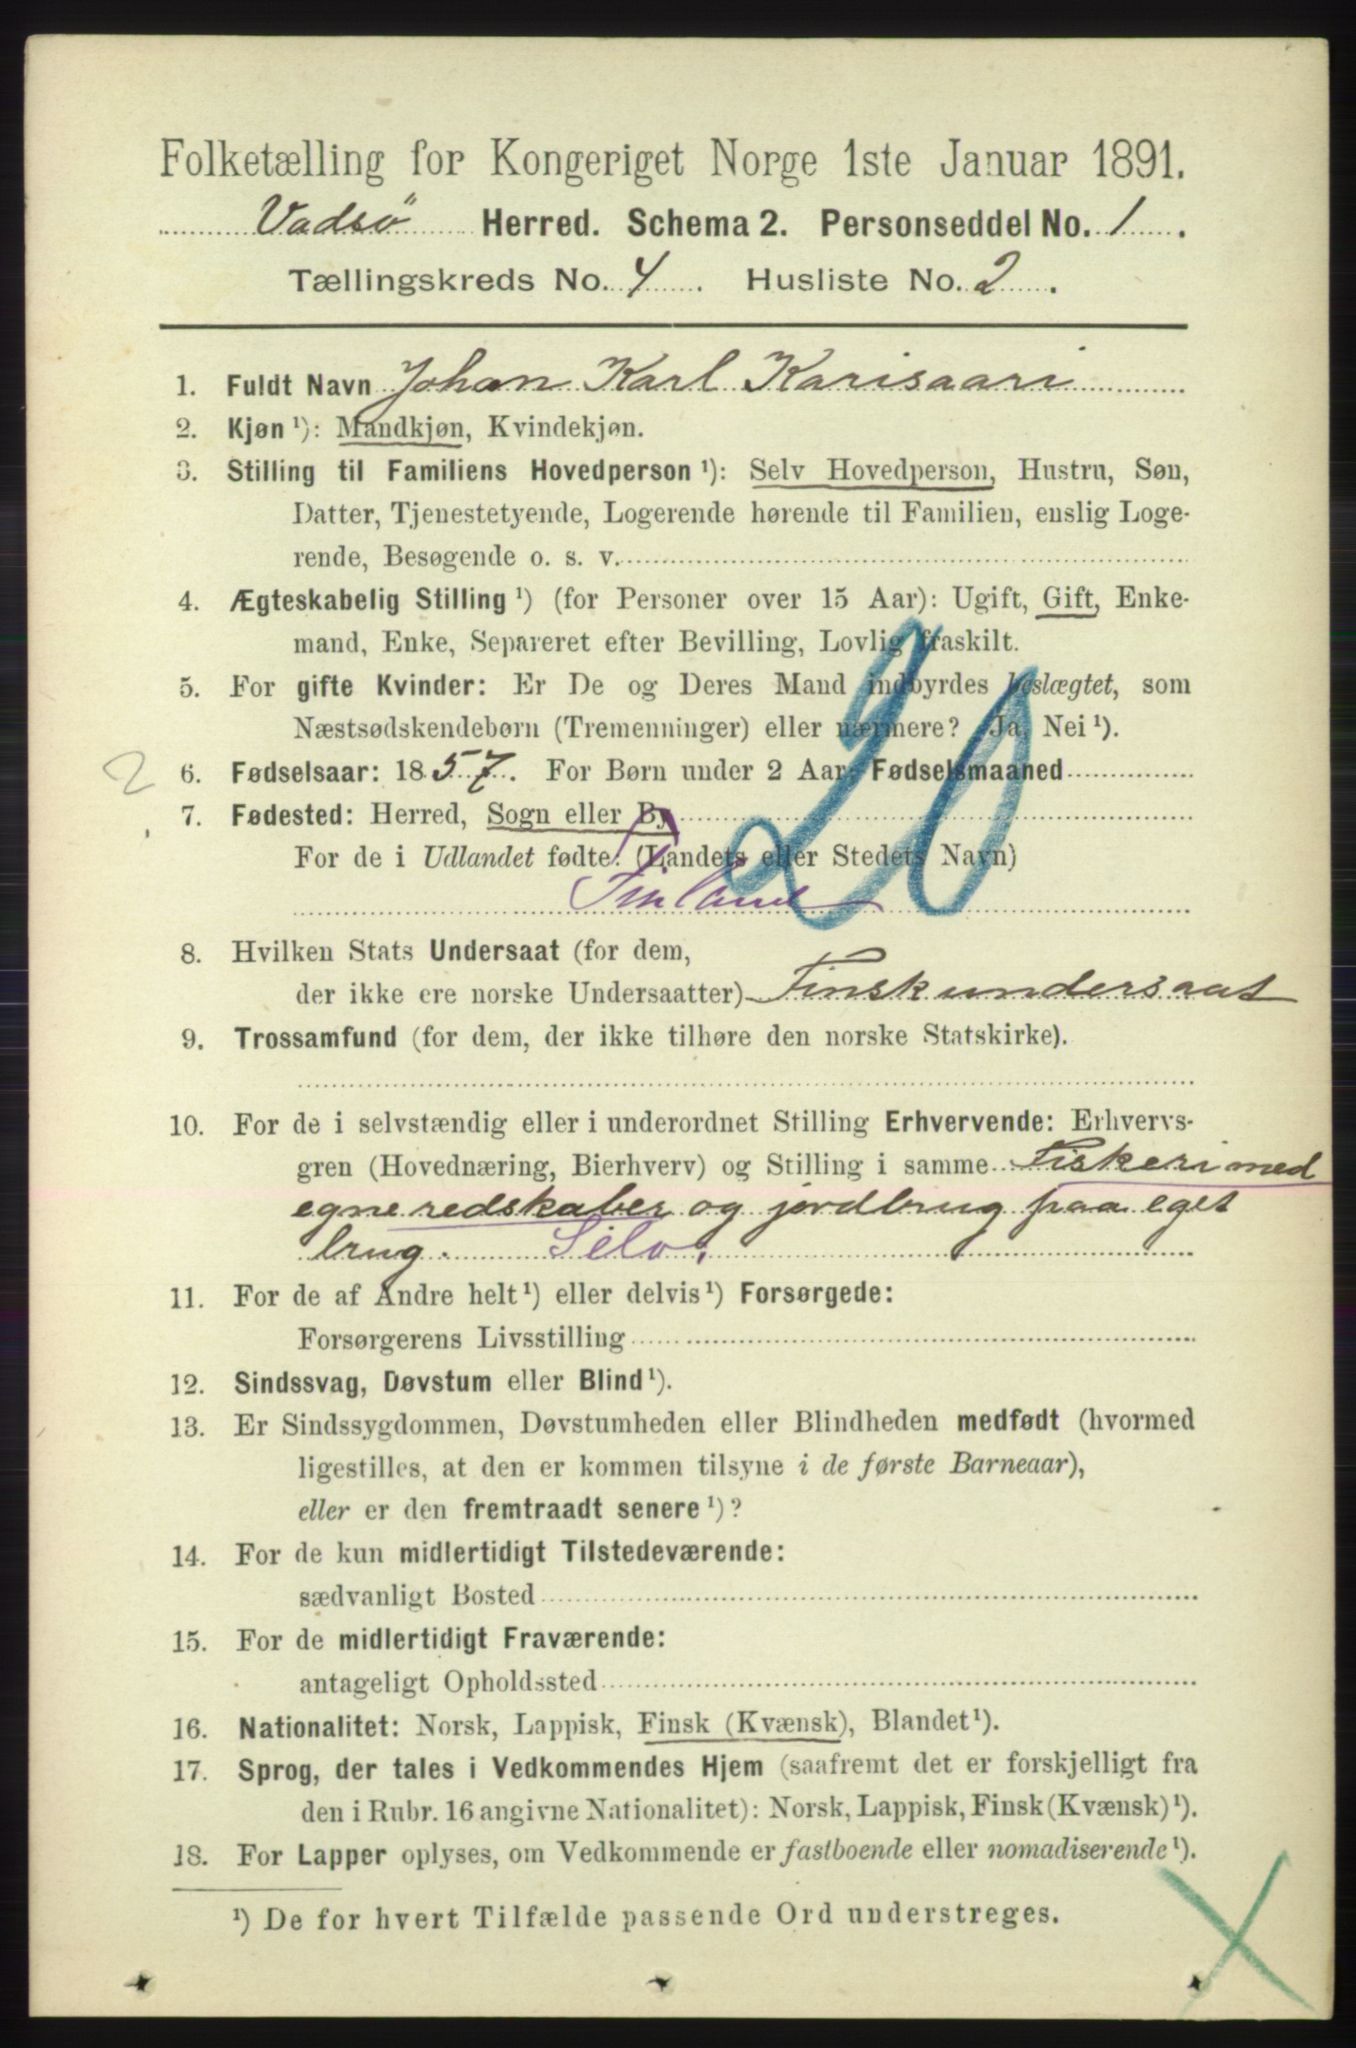 Folketælling for Kongeriget Norge 1ste Januar 1891.
Vadsø Herred. Schema 2. Personseddel No. 1.
Tællingskreds No. 4. Husliste No. 2.
1. Fuldt Navn Johan Karl Karisaari
2. Kjøn ¹): Mandkjøn, Kvindekjøn.
3. Stilling til Familiens Hovedperson ¹): Selv Hovedperson, Hustru, Søn,
Datter, Tjenestetyende, Logerende hørende til Familien, enslig Loge-
rende, Besøgende o. s. v.
4. Ægteskabelig Stilling ¹) (for Personer over 15 Aar): Ugift, Gift, Enke-
mand, Enke, Separeret efter Bevilling, Lovlig fraskilt.
5. For gifte Kvinder: Er De og Deres Mand indbyrdes beslægtet, som
Næstsødskendebørn (Tremenninger) eller nærmere? Ja, Nei ¹).
20
2
6. Fødselsaar: 1857. For Børn under 2 Aar: Fødselsmaaned
7. Fødested: Herred, Sogn eller By
For de i Udlandet fødte: (Landets eller Stedets Navn)
Finland
8. Hvilken Stats Undersaat (for dem,
der ikke ere norske Undersaatter) Finsk undersaat
9. Trossamfund (for dem, der ikke tilhøre den norske Statskirke).
10. For de i selvstændig eller i underordnet Stilling Erhvervende: Erhvervs-
gren (Hovednæring, Bierhverv) og Stilling i samme Fiskeri med
egne redskaber og jordbrug paa eget
brug. Selv.
11. For de af Andre helt ¹) eller delvis ¹) Forsørgede:
Forsørgerens Livsstilling
12. Sindssvag, Døvstum eller Blind ¹).
13. Er Sindssygdommen, Døvstumheden eller Blindheden medfødt (hvormed
ligestilles, at den er kommen tilsyne i de første Barneaar),
eller er den fremtraadt senere ¹)?
14. For de kun midlertidigt Tilstedeværende:
sædvanligt Bosted
15. For de midlertidigt Fraværende:
antageligt Opholdssted
16. Nationalitet: Norsk, Lappisk, Finsk (Kvænsk), Blandet ¹).
17. Sprog, der tales i Vedkommendes Hjem (saafremt det er forskjelligt fra
den i Rubr. 16 angivne Nationalitet): Norsk, Lappisk, Finsk (Kvænsk) ¹).
18. For Lapper oplyses, om Vedkommende er fastboende eller nomadiserende ¹).
¹) De for hvert Tilfælde passende Ord understreges.